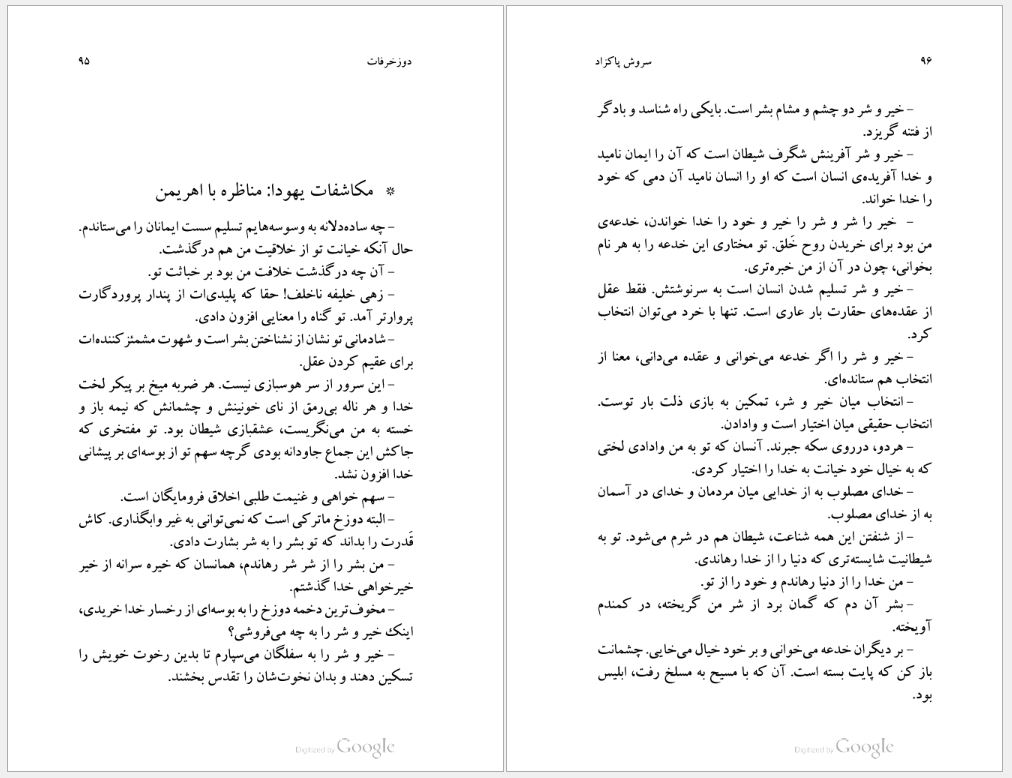 دوزخرفات ۹۵
* مکاشفات یهودا: مناظره با اهریمن
– چه ساده‌دلانه به وسوسه‌هایم تسلیم سست ایمانان را می‌ستاندم.
حال آنکه خیانت تو از خلاقیت من هم درگذشت.
– آن چه درگذشت خلافت من بود بر خباثت تو.
– زهی خلیفه ناخلف! حقا که پلیدی‌ات از پندار پروردگارت
پروارتر آمد. تو گناه را معنایی افزون دادی.
– شادمانی تو نشان از نشناختن بشر است و شهوت مشمئزکننده‌ات
برای عقیم کردن عقل.
– این سرور از سر هوسبازی نیست. هر ضربه میخ بر پیکر لخت
خدا و هر ناله بی‌رمق از نای خونینش و چشمانش که نیمه باز و
خسته به من می‌نگریست، عشقبازی شیطان بود. تو مفتخری که
جاکش این جماع جاودانه بودی گرچه سهم تو از بوسه‌ای بر پیشانی
خدا افزون نشد.
– سهم خواهی و غنیمت طلبی اخلاق فرومایگان است.
– البته دوزخ ماترکی است که نمی‌توانی به غیر وابگذاری. کاش
قَدرت را بداند که تو بشر را به شر بشارت دادی.
– من بشر را از شر شر رهاندم، همانسان که خیره سرانه از خیر
خیرخواهی خدا گذشتم.
– مخوف‌ترین دخمه دوزخ را به بوسه‌ای از رخسار خدا خریدی،
اینک خیر و شر را به چه می‌فروشی؟
– خیر و شر را به سفلگان می‌سپارم تا بدین رخوت خویش را
تسکین دهند و بدان نخوت‌شان را تقدس بخشند.
Digitized by Google
۹۶ سروش پاکزاد
– خیر و شر دو چشم و مشام بشر است. بایکی راه شناسد و بادگر
از فتنه گریزد.
– خیر و شر آفرینش شگرف شیطان است که آن را ایمان نامید
و خدا آفریده‌ی انسان است که او را انسان نامید آن دمی که خود
را خدا خواند.
– خیر را شر و شر را خیر و خود را خدا خواندن، خدعه‌ی
من بود برای خریدن روح خَلق. تو مختاری این خدعه را به هر نام
بخوانی، چون در آن از من خبره‌تری.
– خیر و شر تسلیم شدن انسان است به سرنوشتش. فقط عقل
از عقده‌های حقارت بار عاری است. تنها با خرد می‌توان انتخاب
کرد.
– خیر و شر را اگر خدعه می‌خوانی و عقده می‌دانی، معنا از
انتخاب هم ستانده‌ای.
– انتخاب میان خیر و شر، تمکین به بازی ذلت بار توست.
انتخاب حقیقی میان اختیار است و وادادن.
– هردو، درروی سکه جبرند. آنسان که تو به من وادادی لختی
که به خیال خود خیانت به خدا را اختیار کردی.
– خدای مصلوب به از خدایی میان مردمان و خدای در آسمان
به از خدای مصلوب.
– از شنفتن این همه شناعت، شیطان هم در شرم می‌شود. تو به
شیطانیت شایسته‌تری که دنیا را از خدا رهاندی.
– من خدا را از دنیا رهاندم و خود را از تو.
– بشر آن دم که گمان برد از شر من گریخته، در کمندم
آویخته.
– بر دیگران خدعه می‌خوانی و بر خود خیال می‌خایی. چشمانت
باز کن که پایت بسته است. آن که با مسیح به مسلخ رفت، ابلیس
بود.
Digitized by Google